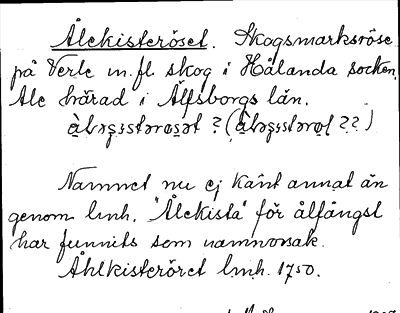 Ålekisteröset. Skogsmarksröse
på Verle m.fl. skog i Hålanda socken,
Ale härad i Älfsborgs län.
? ( ?? )
Namnet nu ej känt annat än
genom lmh. "Ålekista" för ålfångst
har funnits som namnorsak.
Åhlkisteröret lmh. 1750.